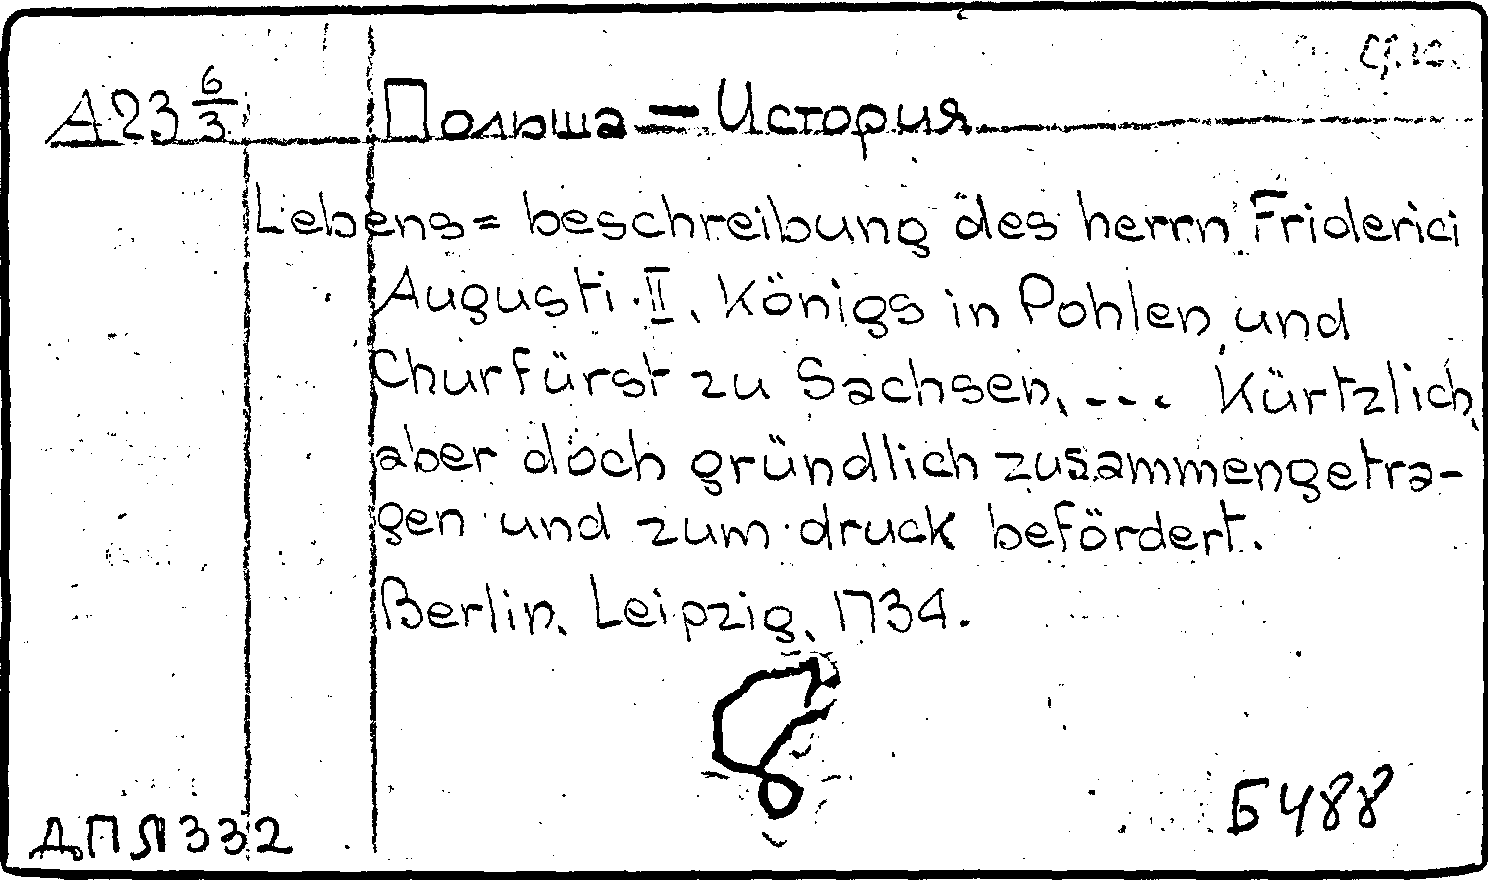 А23 6/3 Польша - История
Lebens= beschreibung des herrn Friderici
Augusti II, Königs in Pohlen und
Churfürst zu Sachsen, ... Kürtzlich,
aber doch gründlich zusammengetra-
gen und zum druck befördert.
Berlin, Leipzig, 1734.
8
Б488
332